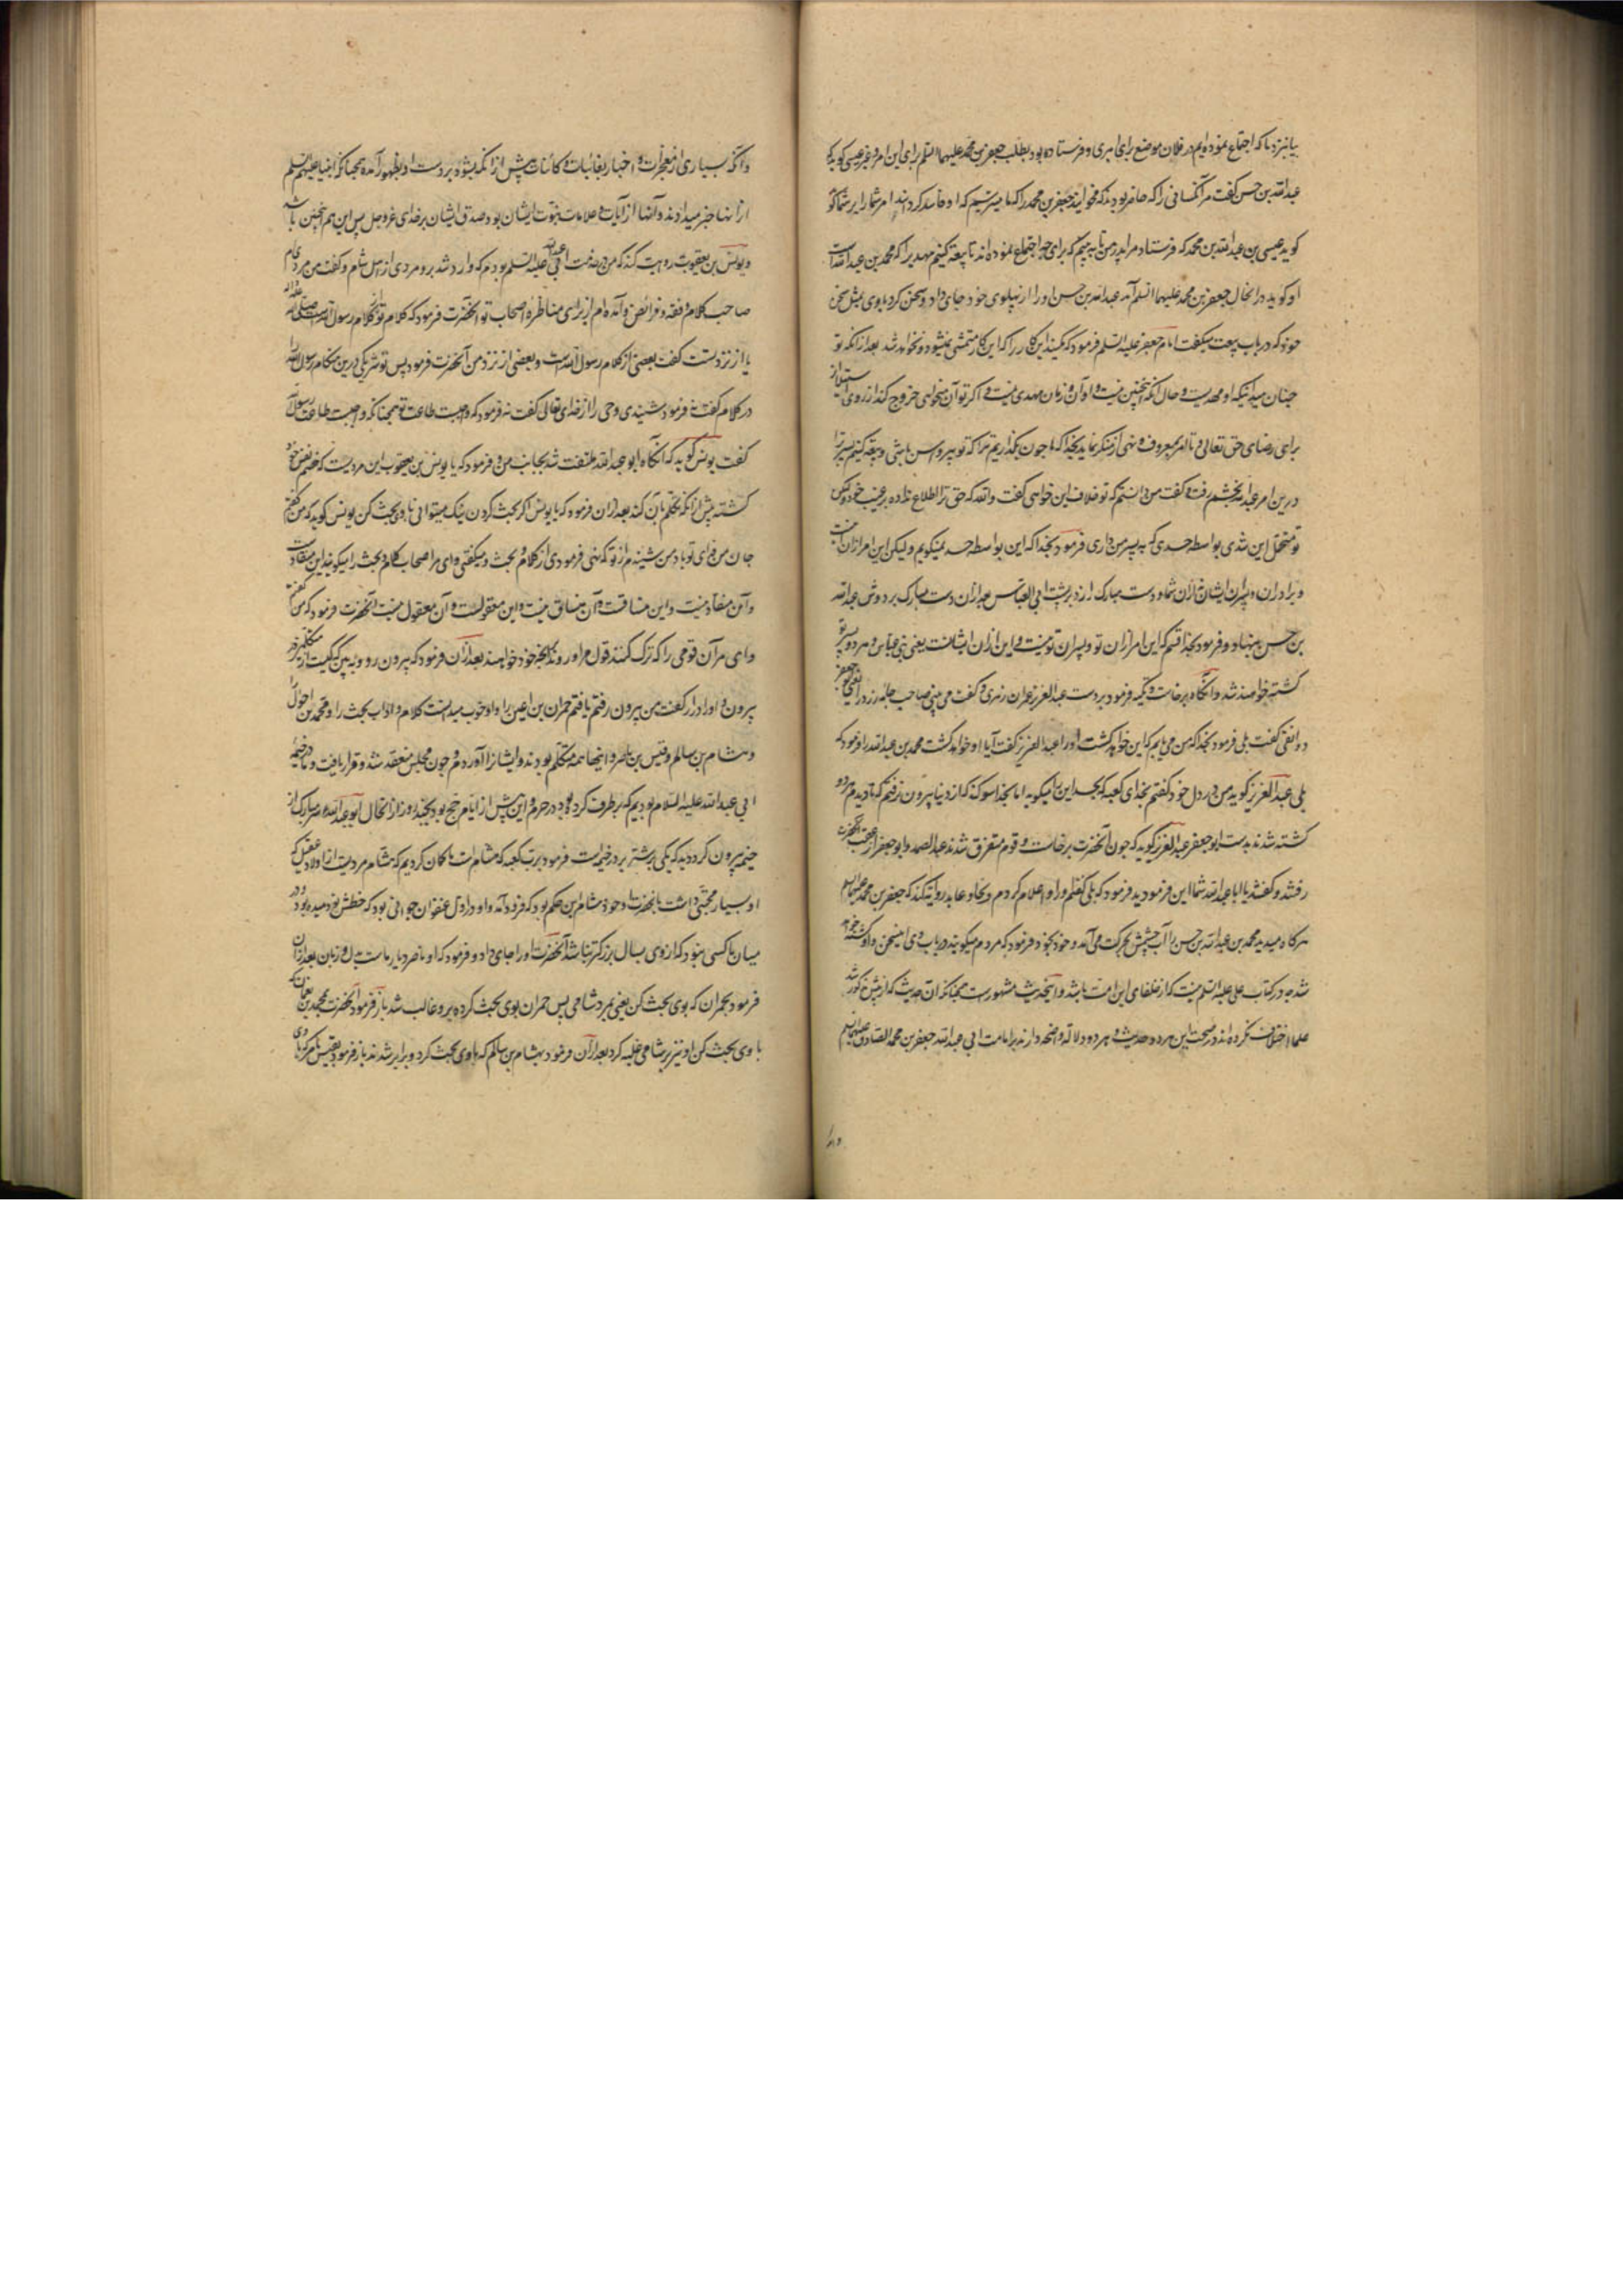 بیا بنزد ما که اجتماع نموده‌ایم در فلان موضع برای امری و فرستاده بود بطلب جعفر بن محمد علیهما السلم برای این امر و غیر عیسی گوید که
عبدالله بن حسن گفت مر آنکسانی را که حاضر بودند که مخوانید جعفر بن محمد را که ما میترسیم که او فاسد گرداند امر شما را بر شما
گوید عیسی بن عبدالله بن محمد که فرستاد مرا پدر من تا به بینم که برای چه اجتماع نموده‌اند تا بیعت کنیم مهدیرا که محمد بن عبدالله است
او گوید در انحال جعفر بن محمد علیهما السلم آمد عبدالله بن حسن او را از پهلوی خود جای داد و سخن کرد با وی بمثل سخن
خود که در باب بیعت میگفت امام جعفر علیه السلم فرمود که مکنید این کار را که این کار متمشی نمیشود و نخواهد شد بعد از آنکه تو
چنان میدانیکه او مهدیست و حال آنکه اینچنین نیست و اوان و زمان مهدی نیست و اگر تو آن میخواهی خروج کند از روی
برای رضای حق تعالی و تا امر بمعروف و نهی از منکر نماید بخدا که ما چون بگذاریم ترا که تو پیر و اسن باشی و بیعت کنیم پسر ترا
درین امر عبدالله بخشم رفت و گفت من دانستم که تو خلاف این خواهی گفت والله که حق ترا اطلاع نداده بر غیب خود و لیکن
تو متحمل این شدی بواسطه حسدی که به پسر من داری فرمود بخدا که این بواسطه حسد نمیگویم و لیکن این امر از آن
و برادران و پسران ایشان نه از آن شما و دست مبارک زد بر پشت ابی العباس بعد از آن دست مبارک بر دوش عبدالله
بن حسن بنهاد و فرمود بخدا قسم که این امر از آن تو و پسران تو نیست و این از آن ایشانست یعنی بنی عباس و هر دو پسر تو
کشته خواهند شد و آنگاه برخاست و تکیه فرمود بر دست عبدالعزیز عمران زهری و گفت می بینی صاحب جامه زرد را یعنی ابو جعفر
دوانقی گفت بلی فرمود بخدا که من می یابم که این خواهد کشت او را عبدالعزیز گفت آیا او خواهد کشت محمد بن عبدالله را فرمود که
بلی عبدالعزیز گوید من در دل خود گفتم بخدای کعبه که بحسد این را میگوید اما بخدا سوگند که از دنیا بیرون نرفتم که تا دیدم هر دو
کشته شدند بدست ابو جعفر عبدالعزیز گوید که چون آنحضرت برخاست و قوم متفرق شدند عبدالصمد و ابو جعفر از عقب آنحضرت
رفتند و گفتند یا ابا عبدالله شما این فرمودید فرمود که بلی گفتم و را و اعلام کردم و بجاد عابد روایت کند که جعفر بن محمد علیهما السلم
هر گاه میدید محمد بن عبدالله بن حسن را آب چشمش بحرکت می آمد و خود بخود فرمود که مردم میگویند در باب وی اینسخن و او کشته
شده در کتاب علی علیه السلم نیست که از خلفای این امت باشد و اینحدیث مشهورست همچنانکه آن حدیث که از پیش مذکور شد
علما اختلاف نکرده‌اند در صحت این هر دو حدیث و هر دو دلاله واضحه دارند بر امامت ابی عبدالله جعفر بن محمد الصادق علیهما السلم
و آنکه بسیاری از معجزات و اخبار بغائبات و کائنات پیش از آنکه بشود بر دست او بظهور آمده همچنانکه انبیا علیهم السلم
از آنها خبر میدادند و آنها از آیات و علامات نبوت ایشان بود و صدق ایشان بر خدای عزوجل پس این هم اینچنین باشد
و یونس بن یعقوب روایت کند که من در خدمت ابی عبدالله علیه السلم بودم که وارد شد برو مردی از اهل شام و گفت من مردی‌ام
صاحب کلام و فقه و فرائض و آمده‌ام از برای مناظره اصحاب تو آنحضرت فرمود که کلام تو از کلام رسول الله است صلی الله علیه و آله
یا از نزد تست گفت بعضی از کلام رسول الله است و بعضی از نزد من آنحضرت فرمود پس تو شریکی درین هنگام رسول الله را
در کلام گفت نه فرمود شنیدی وحی را از خدای تعالی گفت نه فرمود که واجبست طاعت تو همچنانکه واجبست طاعت رسول
گفت نه یونس گوید که آنگاه ابو عبدالله ملتفت شد بجانب من و فرمود که یا یونس بن یعقوب این مردیست که خصم نفس خود
گشته پیش از آنکه تکلم بآن کند بعد از آن فرمود که یا یونس اگر بحث کردن نیک میتوانی با وی بحث کن یونس گوید که من گفتم
جان من فدای تو باد من شنیده‌ام از تو که نهی فرمودی از کلام و بحث و میگفتی وای مر اصحاب کلام و بحث را میگویند این منقادست
و آن منقاد نیست و این منساقست و آن منساق نیست و این معقولست و آن معقول نیست آنحضرت فرمود که من گفتم
وای مر آن قومی را که ترک کنند قول مرا و روند بانچه خود خواهند بعد از آن فرمود که بیرون رو و به بین که کیست از متکلمین
بیرون و او را درآر گفت من بیرون رفتم یافتم حمران بن اعین را و او خوب میدانست کلام و آداب بحث را و محمد بن احول را
و هشام بن سالم و قیس بن ماصر و اینها همه متکلم بودند و ایشانرا آوردم و چون مجلس منعقد شد و قرار یافت و ما در خیمه
ابی عبدالله علیه السلام بودیم که بر طرف کوه بود در حرم و این پیش از ایام حج بود بچند روز در انحال ابو عبدالله سر مبارک از
خیمه بیرون کرد دید که یکی بر شتر بر در خیمه است فرمود برب کعبه که هشام است ما گمان کردیم که هشام مردیست از اولاد عقیل که
او بسیار محبتی داشت بآنحضرت و خود هشام بن حکم بود که فرود آمد و او در اول عنفوان جوانی بود که خطش نو دمیده بود و در
میان ما کسی نبود که از وی بسال بزرگتر نباشد آنحضرت او را جای داد و فرمود که او ناصر و یار ماست بدل و زبان بعد از آن
فرمود بحمران که بوی بحث کن یعنی بمرد شامی پس حمران بوی بحث کرده برو غالب شد باز فرمود آنحضرت بمحمد بن نعمان که
با وی بحث کن او نیز بر شامی غلبه کرد بعد از آن فرمود بهشام بن سالم که با وی بحث کرد و برابر شدند باز فرمود بقیس